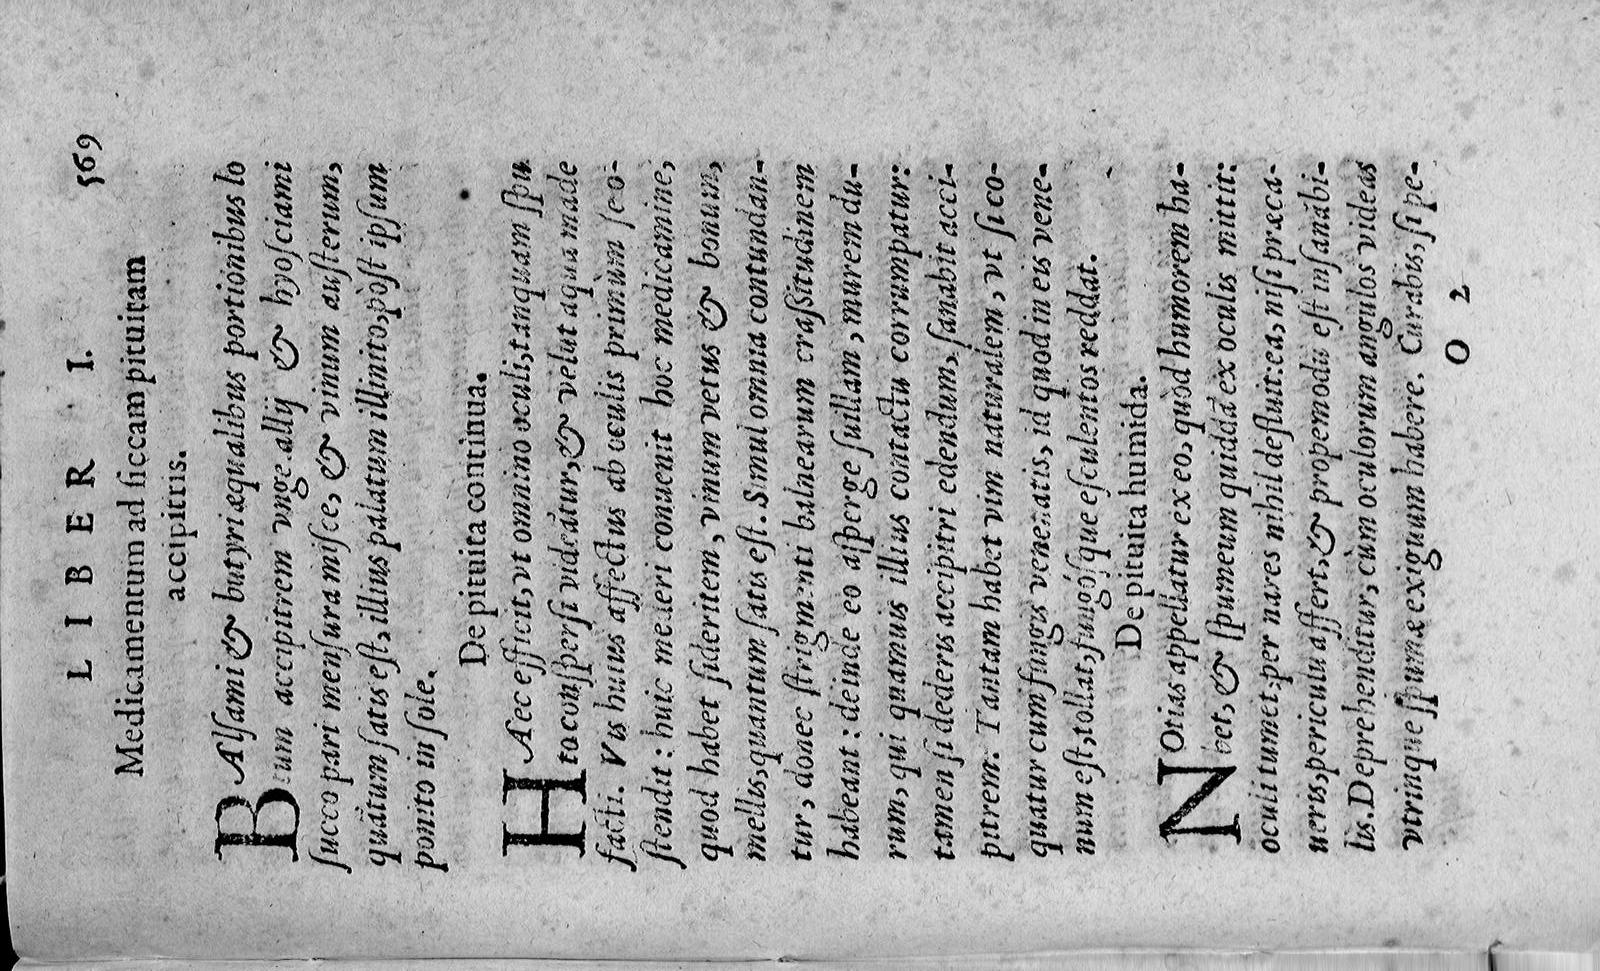 LIBER I. 569
Medicamentum ad ſiccam pituitam
accipitris.
BAlſami & butyri æqualibus portionibus lo
tum accipitrem vnge. allij & hyoſciami
ſucco pari menſura miſce, & vinum auſterum,
quātum ſatis eſt, illius palatum illinito, pòſt ipſum
ponito in ſole.
De pituita continua.
HAec efficit, vt omnino oculi, tanquam ſpu
to conſperſi videātur, & velut aqua made
facti. Vis huius affectus ab oculis primùm ſe o-
ſtendit: huic mederi conuenit hoc medicamine,
quod habet ſideritem, vinum vetus & bonum,
mellis, quantum ſatis eſt. Simul omnia contundan-
tur, donec ſtrigmenti balnearum craſsitudinem
habeant: deinde eo aſperge ſuillam, murem du-
rum, qui quamuis illius contactu corrumpatur:
tamen ſi dederis accipitri edendum, ſanabit acci-
pitrem. Tantam habet vim naturalem, vt ſi co-
quatur cum fungis venenatis, id quod in eis vene-
num eſt, tollat, fungóſque eſculentos reddat.
De pituita humida.
NOtias appellatur ex eo, quòd humorem ha-
bet, & ſpumeum quiddā ex oculis mittit:
oculi tumet: per nares nihil defluit: ea, niſi præca-
ueris, periculū affert, & propemodū eſt inſanabi-
lis. Deprehenditur, cùm oculorum angulos videas
vtrinque ſpumæ exiguum habere. Curabis, ſi pe-
O 2